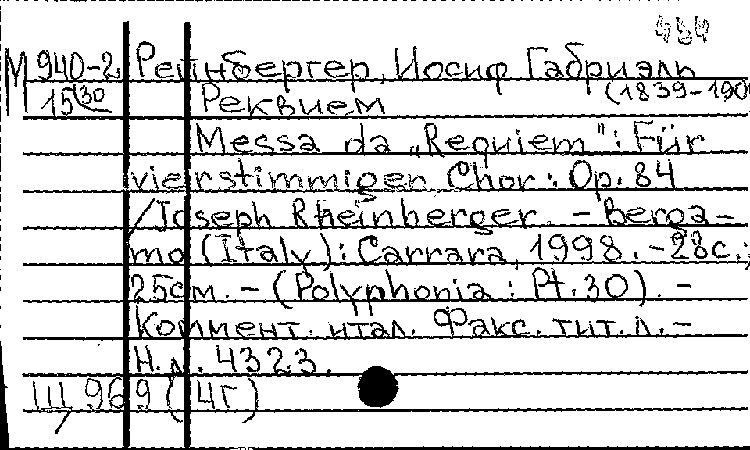 М 940-2 Рейнбергер, Иосиф Габриэль
15 30 Реквием (1839-190
Messa da „Requiem": Für
vierstimmigen Chor: Op. 84
/Joseph Rheinberger. - Berga-
mo (Italy): Carrara, 1998. - 28с.;
25см. - (Polyphonia: Pt. 30). -
Коммент. итал. Факс. тит. л. -
Н.д. 4323.
Щ 969 (4Г)